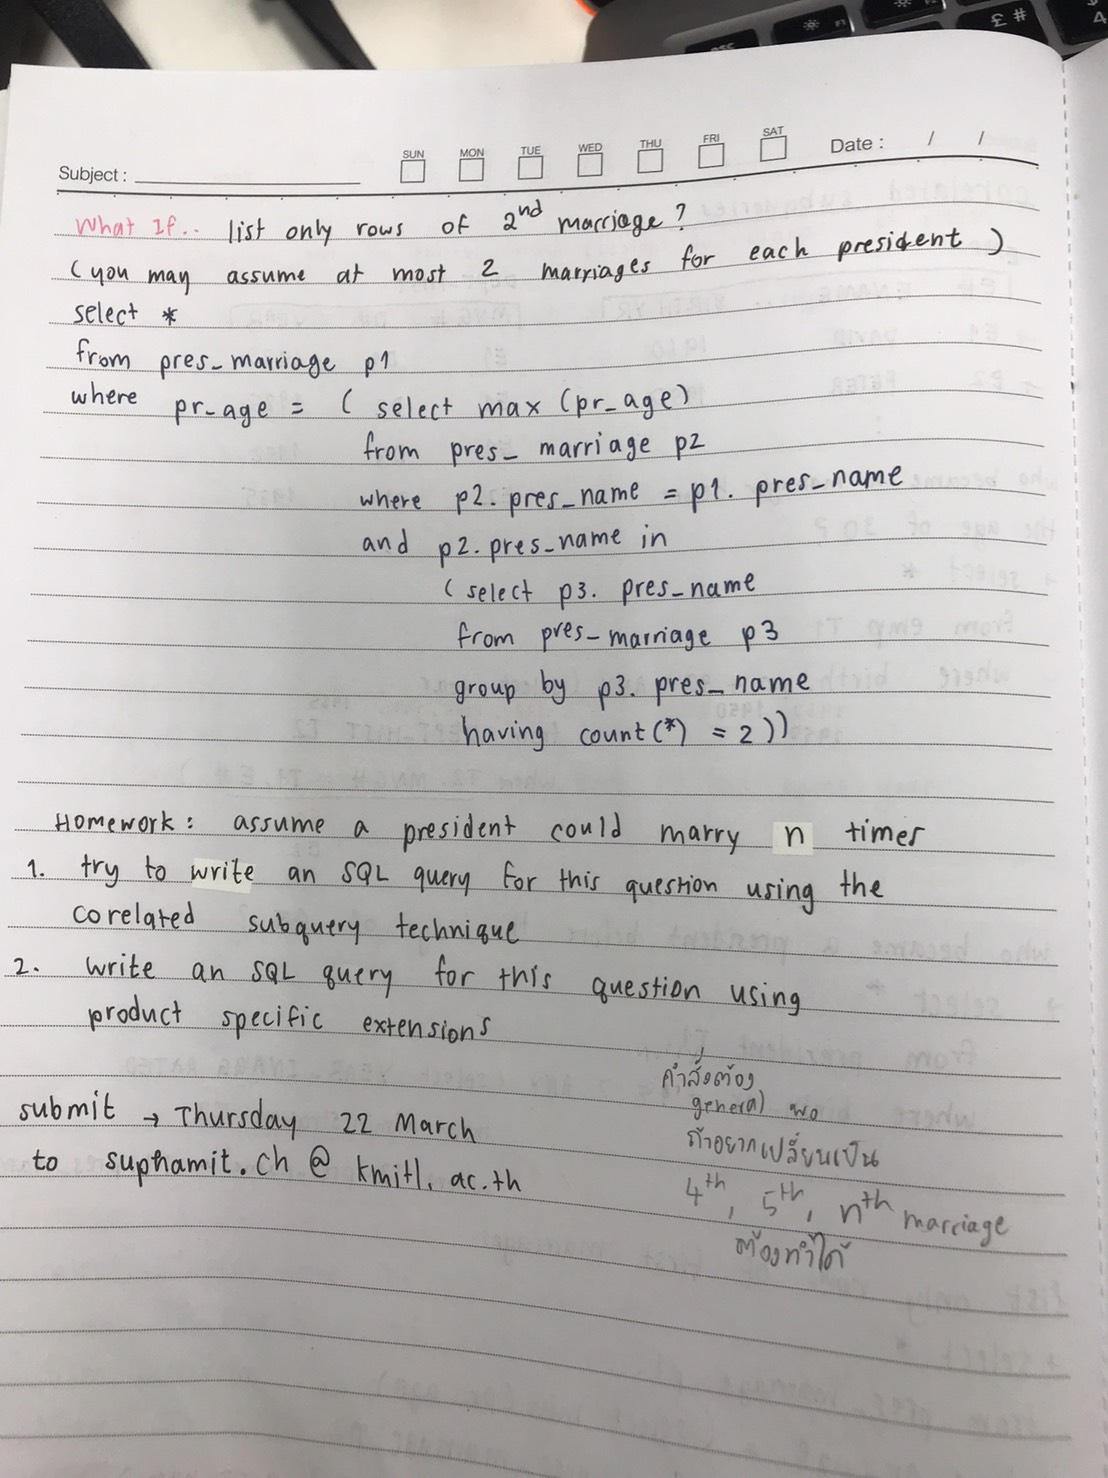 SUN MON TUE WED THU FRI SAT
Subject : Date : / /
What If.. list only rows of 2nd marriage ?
( you may assume at most 2 marriages for each president )
select *
from pres_marriage p1
where pr_age = ( select max (pr_age)
from pres_ marriage p2
where p2. pres_name = p1. pres_name
and p2. pres_name in
( select p3. pres_name
from pres_marriage p3
group by p3. pres_name
having count (*) = 2 ))
Homework : assume a president could marry n times
1. try to write an SQL query for this question using the
corelated subquery technique
2. write an SQL query for this question using
product specific extensions
คำสั่งต้อง
general พอ
ถ้าอยากเปลี่ยนเป็น
4th, 5th, nth marriage
ต้องทำได้
submit → Thursday 22 March
to suphamit.ch @ kmitl. ac.th